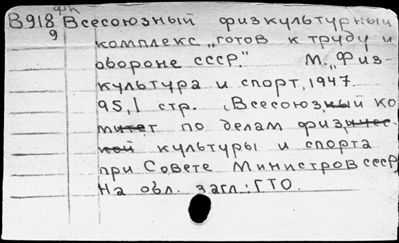 фк
В918 Всесоюзный физкультурный
9 комплекс „готов к труду и
обороне СССР." М. „Физ-
культура и спорт, 1947.
95,1 стр. (Всесоюзный ко
митет по делам физичес.
кой культуры и спорта
при Совете Министров СССР)
На обл. загл.: ГТО.